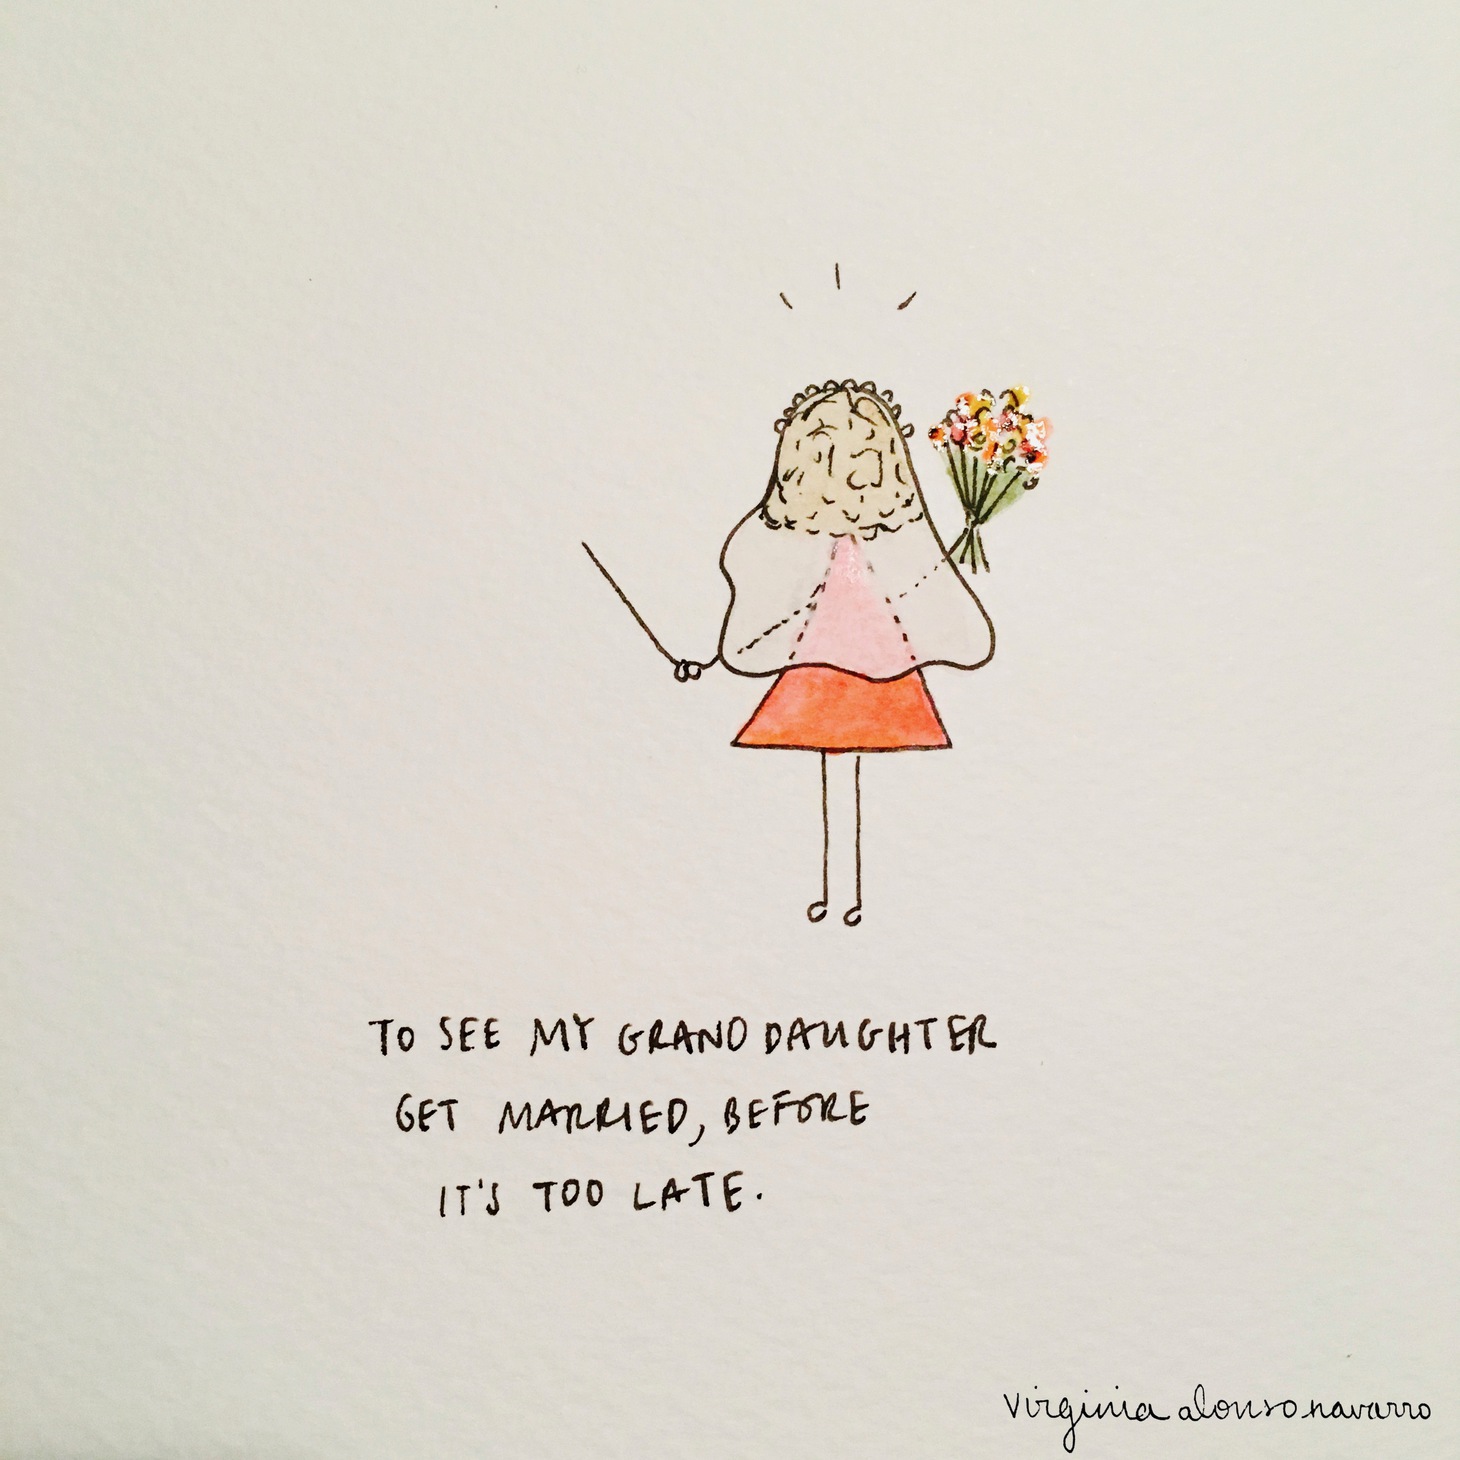 TO SEE MY GRANDDAUGHTER
GET MARRIED, BEFORE
IT'S TOO LATE.
virginia alonso navarro